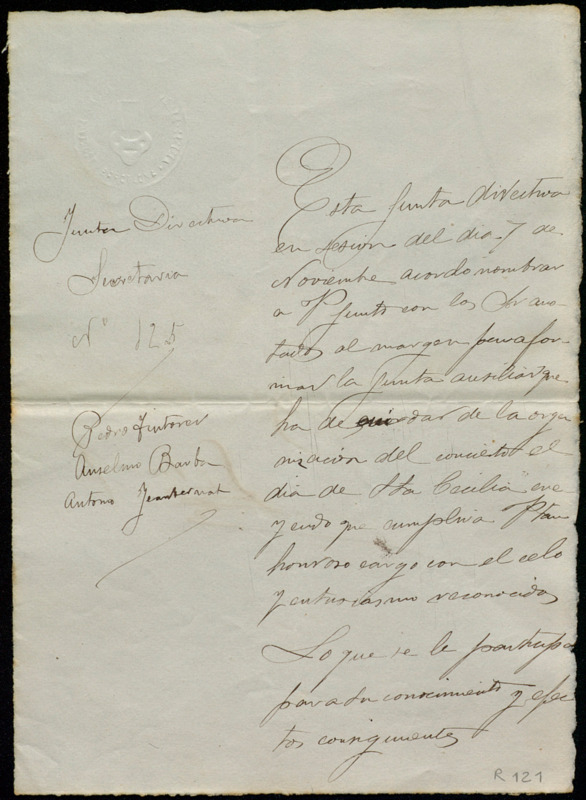 Junta Directiva
Secretaria
Nº 125
Pedro Tintorer
Anselmo Barba
Antonio
Esta Junta directiva
en sesion del dia 7 de
Noviembre acordó nombrar
a V junto con los Sres ano-
tados al margen para for-
mar la Junta auxiliar que
ha de cuidar de la orga-
nización del concierto el
dia de Sta Cecilia cre
yendo que cumplira V tan
honroso cargo con el celo
y entusiasmo reconocidos
Lo que se le participa
para su conocimiento y efec
tos consiguientes
R 121